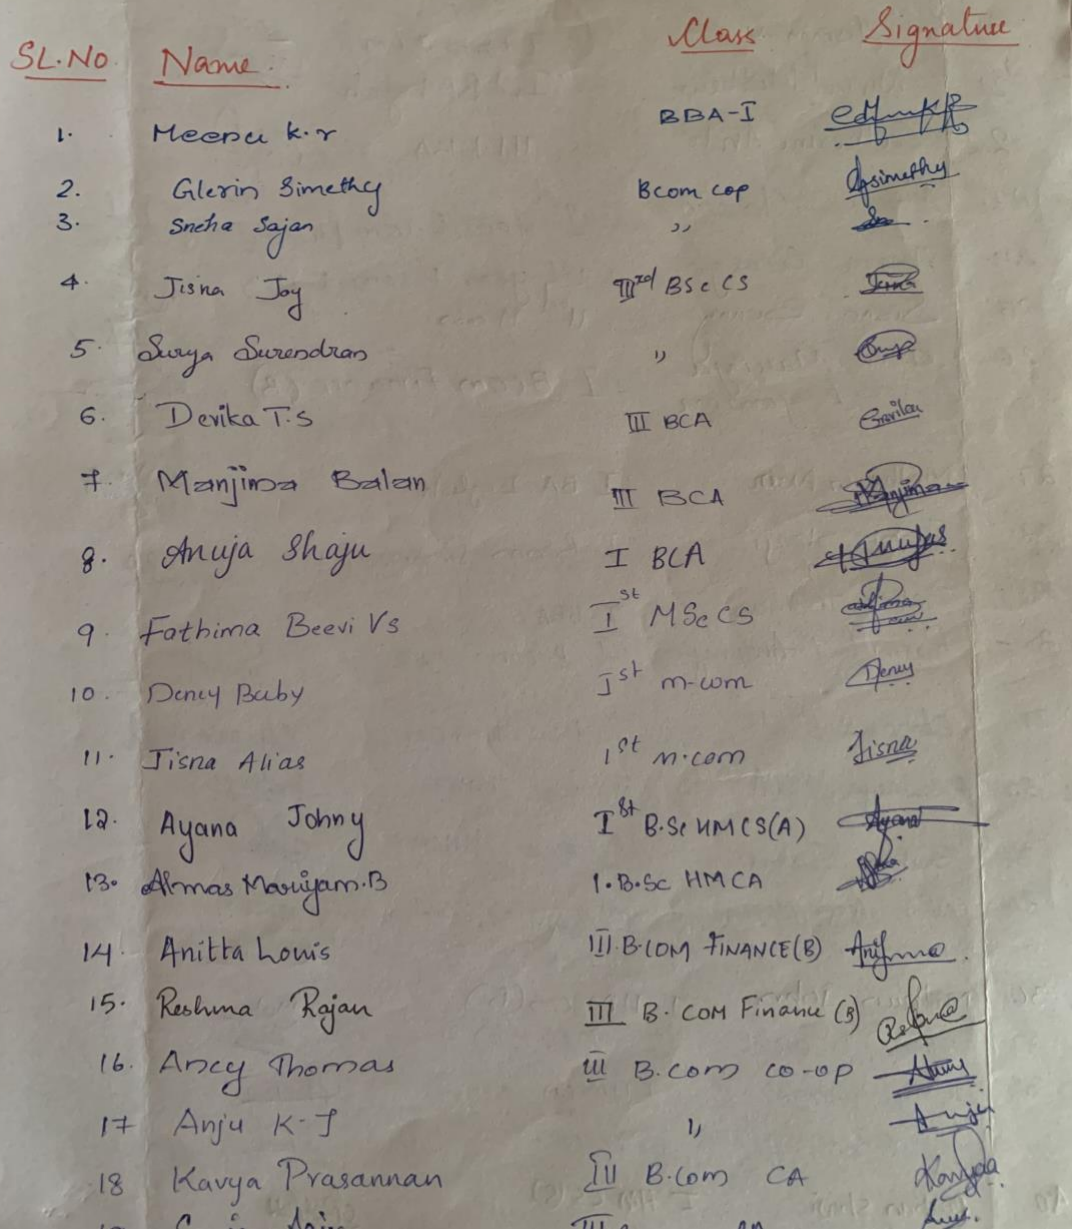 SL.No. Name. Class Signature
1. Meenu K.r BBA-I
2. Glerin Simethy Bcom cop Gsimethy
3. Sneha Sajan ,,
4. Jisna Joy IIIrd BSc CS
5. Surya Surendran ,,
6. Devika T.S III BCA
7. Manjima Balan III BCA Manjima
8. Anuja Shaju I BCA Anuja
9. Fathima Beevi Vs Ist MSc CS
10. Dency Baby Ist m-com Dency
11. Jisna Alias 1st m.com Jisna
12. Ayana Johny Ist B.Sc HMCS(A) Ayana
13. Almas Mariyam.B 1.B.Sc HMCA
14. Anitta Louis III.B.COM FINANCE(B)
15. Reshma Rajan III B.COM Finance (B)
16. Ancy Thomas III B.com co-op Ancy
17 Anju K-J ,, Anju
18 Kavya Prasannan III B.Com CA Kavya